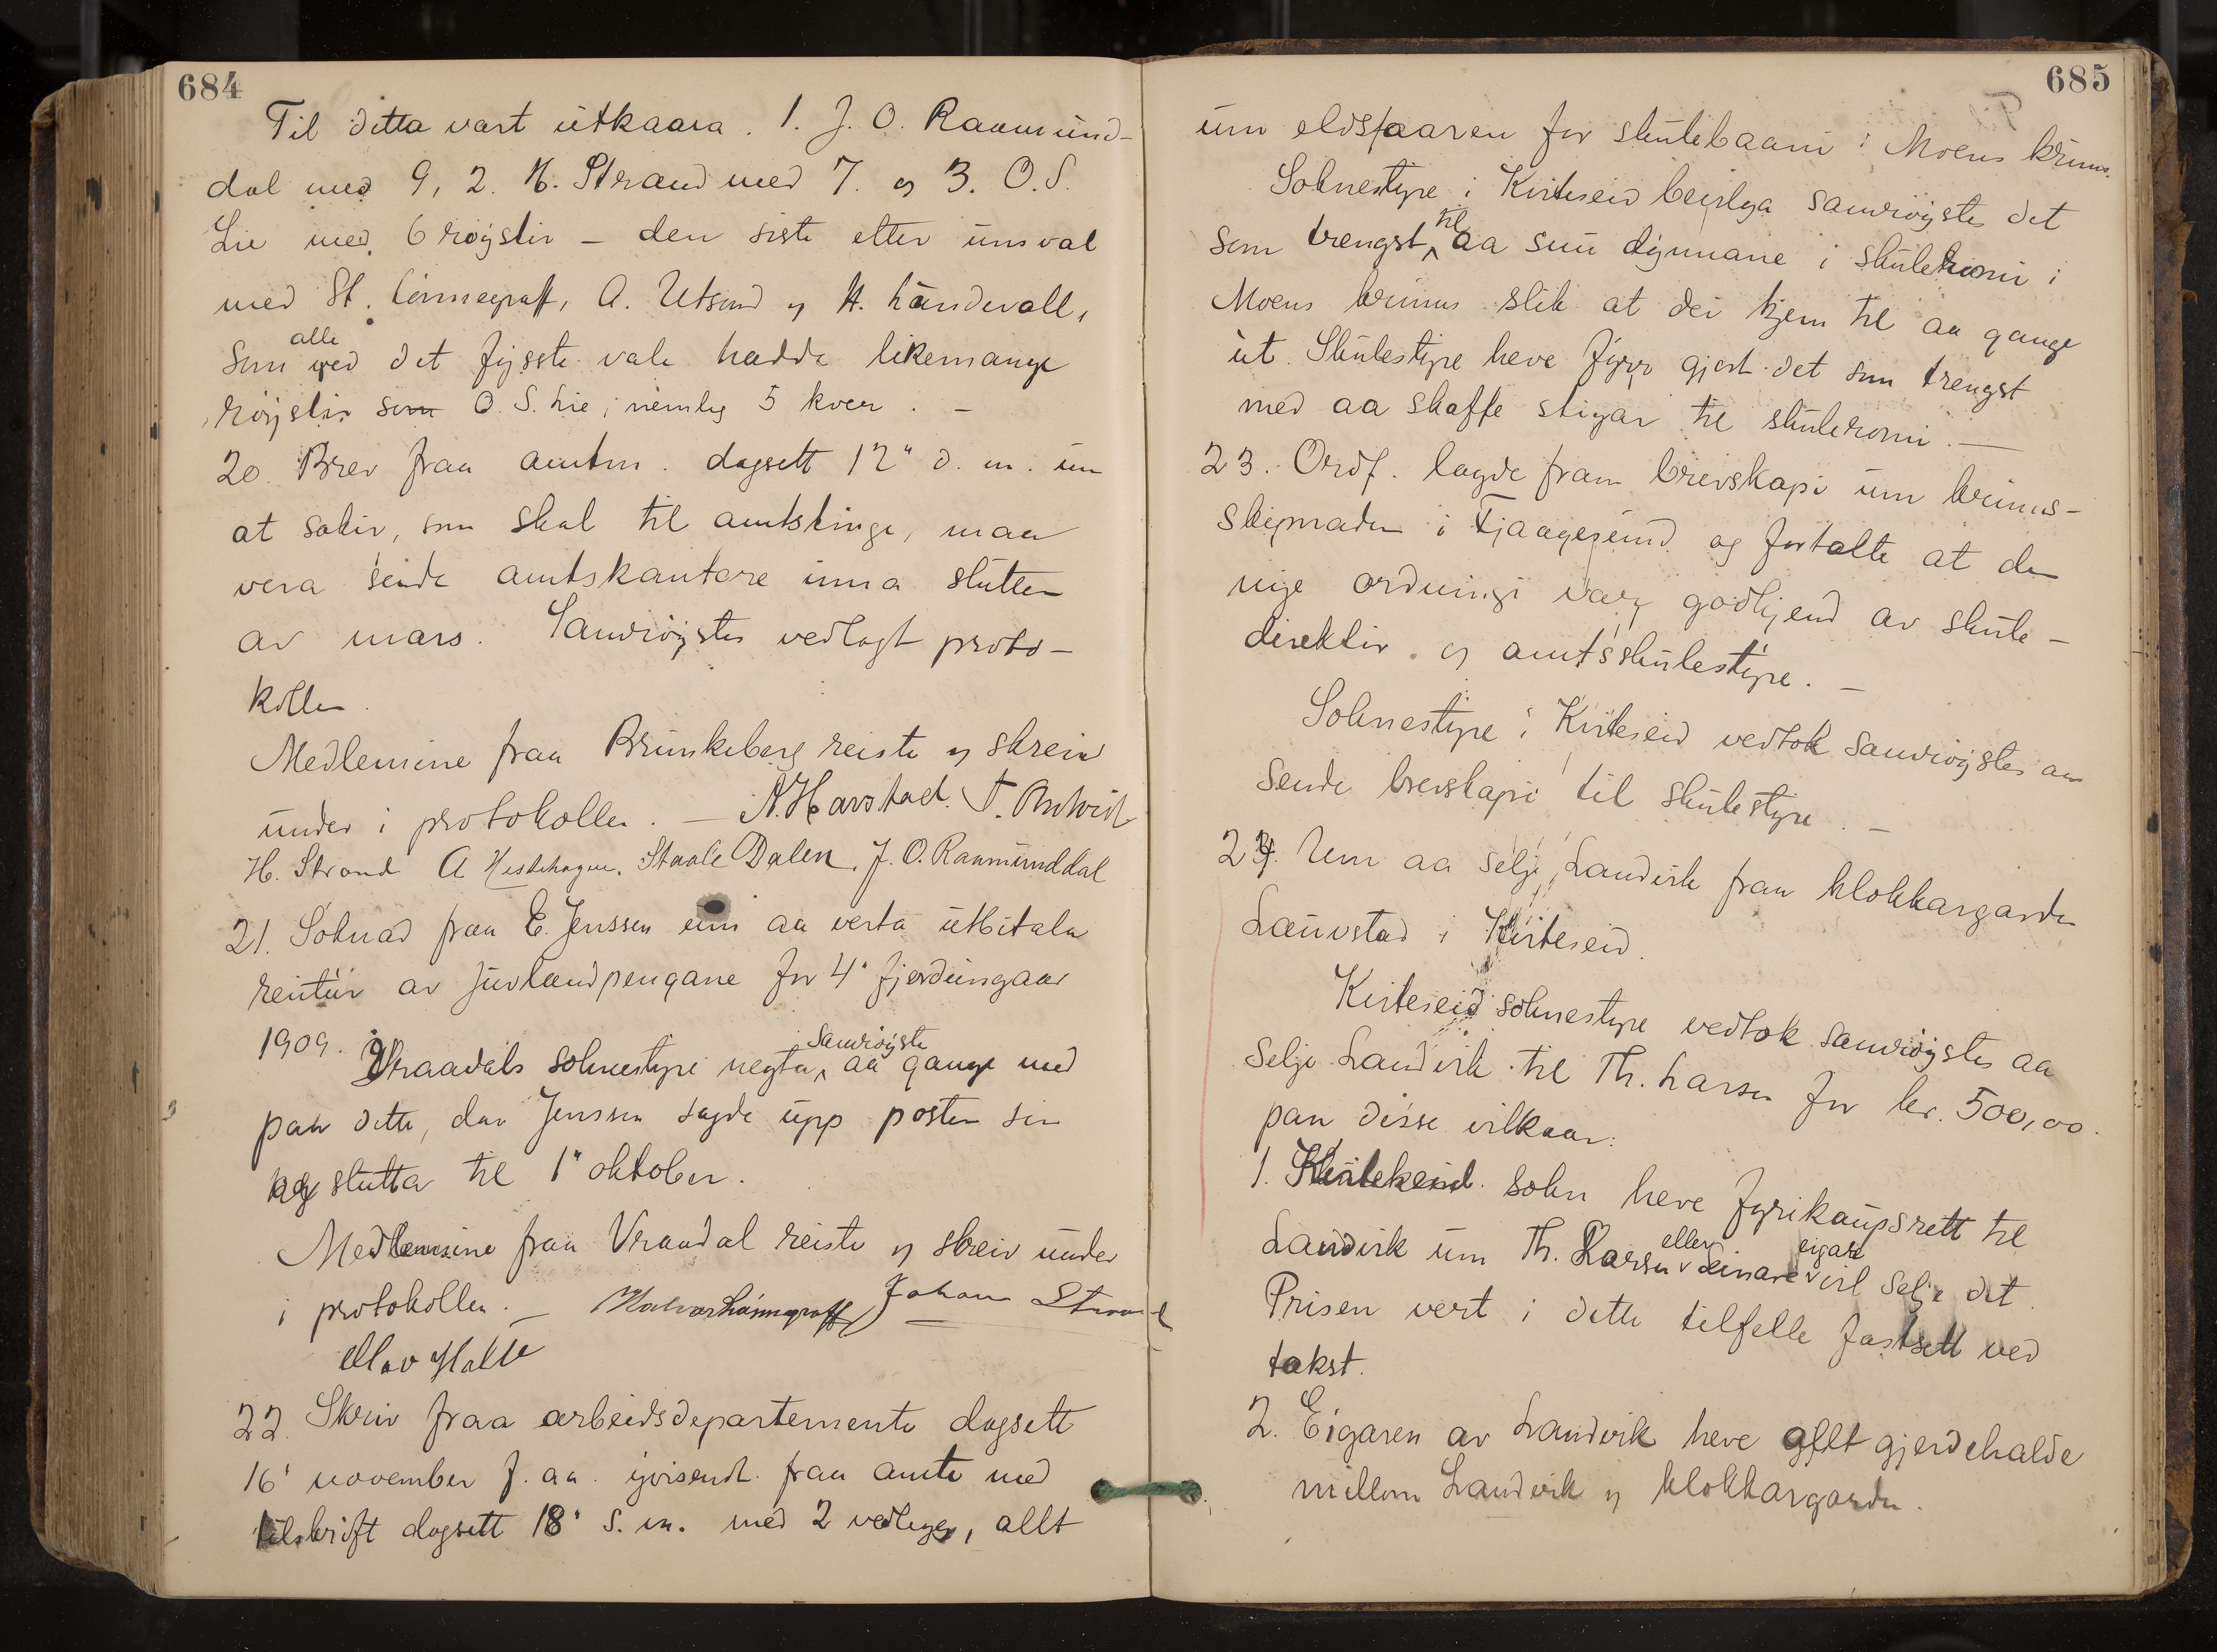 684
Til detta vart utkaara. 1. J. O. Raamund-
dal med 9, 2. H. Strand med 7. og 3. O. S.
Lie med 6 røyster - den siste etter umval
med St. Lønnegraff, A. Utsond og H. Lundevall,
alle
som ved det fysste vale hadde likemange
røyster som O. S. Lie, nemleg 5 kvar. -
20. Brev fraa amtm. dagsett 12" d. m. um
at saker, som skal til amtstinge, maa
vera sende amtskontore inna slutten
av mars. Samrøystes vedlagt proto-
kollen.
Medlemine fraa Brunkeberg reiste og skreiv
under i protokollen. - N. Harstad. T.
H. Strand A Hestehagen. Staale Dalen. J. O. Raamunddal
21. Søknad fraa E. Jenssen um aa verta utbitala
rentur av Juvlandpengane for 4' fjerdungaar
1909.
samrøystes
Vraadals soknestyre negta aa gange med
paa dette, dan Jenssen sagde upp posten sin
og slutta til 1" oktober.
Medlemine fraa Vraadal reiste og skreiv under
i protokollen. - Halvor Lønnegraff Johan Strand
Olav Halte
22. Skriv fraa arbeidsdepartemente dagsett
16' november f. aa. yvisendt fraa amte med
tilskrift dagsett 18' s. m. med 2 vedlegg, allt
685
um eldsfaaren for skulebaani i Moens krins.
Soknestyre i Kviteseid løyva samrøystes det
til
som trengst aa snu dynnane i skuleromi i
Moens krins slik at dei kjem til aa gange
ut. Skulestyre heve fyrr gjort det som trengst
med aa skaffe stigar til skuleromi. -
23. Ordf. lagde fram brevskapi um krins-
skipnaden i Fjaagegrend og fortalte at den
nye ordningi var godkjend av skule-
direktør og amtsskulestyre. -
Soknestyre i Kviteseid vedtok samrøystes aa
sende brevskapi til skulestyre. -
24. Um aa selje Landvik fraa klokkargarden
Launstad i Kviteseid.
Kviteseid soknestyre vedtok samrøystes aa
selje Landvik til Th. Larsen for kr. 500,00.
paa disse vilkaar:
1. Kviteseid sokn heve fyrikaupsrett til
eller eigare
Landvik um Th. Larsen seinare vil selje det.
Prisen vert i dette tilfelle fastsett ved
takst.
2. Eigaren av Landvik heve allt gjerdehalde
millom Landvik og klokkargarden.